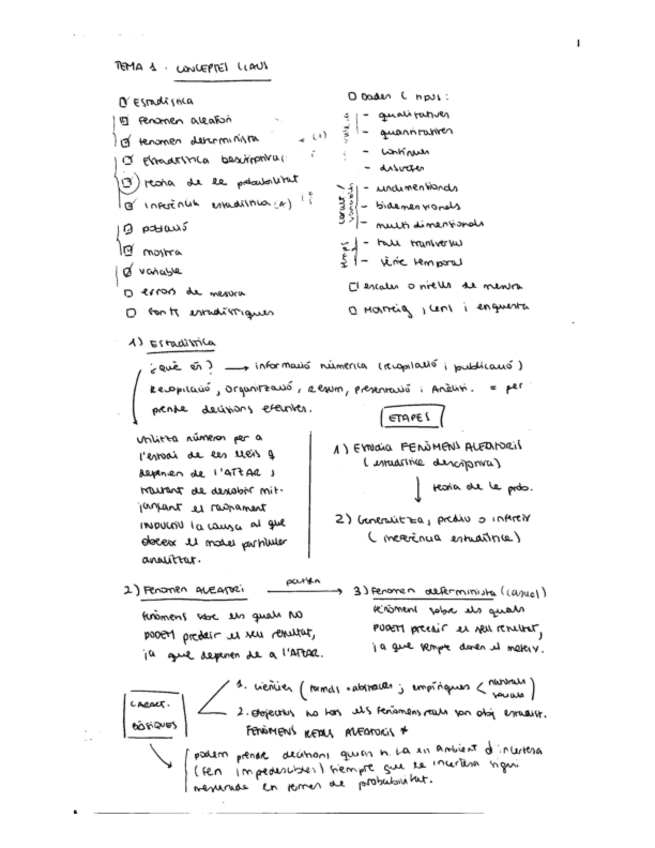 1
TEMA 1. CONCEPTES CLAUS
Estadística
Fenomen aleatori
fenomen determinista
Estadística Descriptiva
teoria de la probabilitat
inferència estadística
població
mostra
variable
errors de mesura
fonts estadístiques
Dades (tipus:
- qualitatives
- quantitatives
- contínues
- discretes
- unidimensionals
- bidimensionals
- multidimensionals
- tall transversal
- sèrie temporal
caràct / variables
temps
escales o nivells de mesura
Mostreig, cens i enquesta
1) Estadística
¿què és? → informació númerica (recopilació i publicació)
Recopilació, organització, resum, presentació i Anàlisi. = per
prendre decisions eficientes.
utilitza números per a
l'estudi de les lleis q
depenen de l'ATZAR i
tractant de descobrir mit-
jançant el raonament
INDUCTIU la causa al que
obeeix el model particular
analitzat.
ETAPES
1) Estudia FENÒMENS ALEATORIS
(estadística descriptiva)
teoria de la prob.
2) Generalitza, prediu o infereix
(inferència estadística)
2) Fenomen ALEATORI
3) Fenomen determinista (causal)
fenòmens sobre els quals NO
PODEM predeir el seu resultat,
ja que depenen de a l'ATZAR.
fenòmens sobre els quals
PODEM predeir el seu resultat,
ja que sempre donen el mateix.
CARACT.
BÀSIQUES
1. ciències (formals = abstractes; empíriques < naturals
socials)
2. Objectius no tots els fenòmens reals son obj estadíst.
FENÒMENS REALS ALEATORIS *
podem prendre decisions quan n. la en ambient d'incertesa
(fen impredecibles) siempre que la incertesa sigui
mesurada en termes de probabilitat.